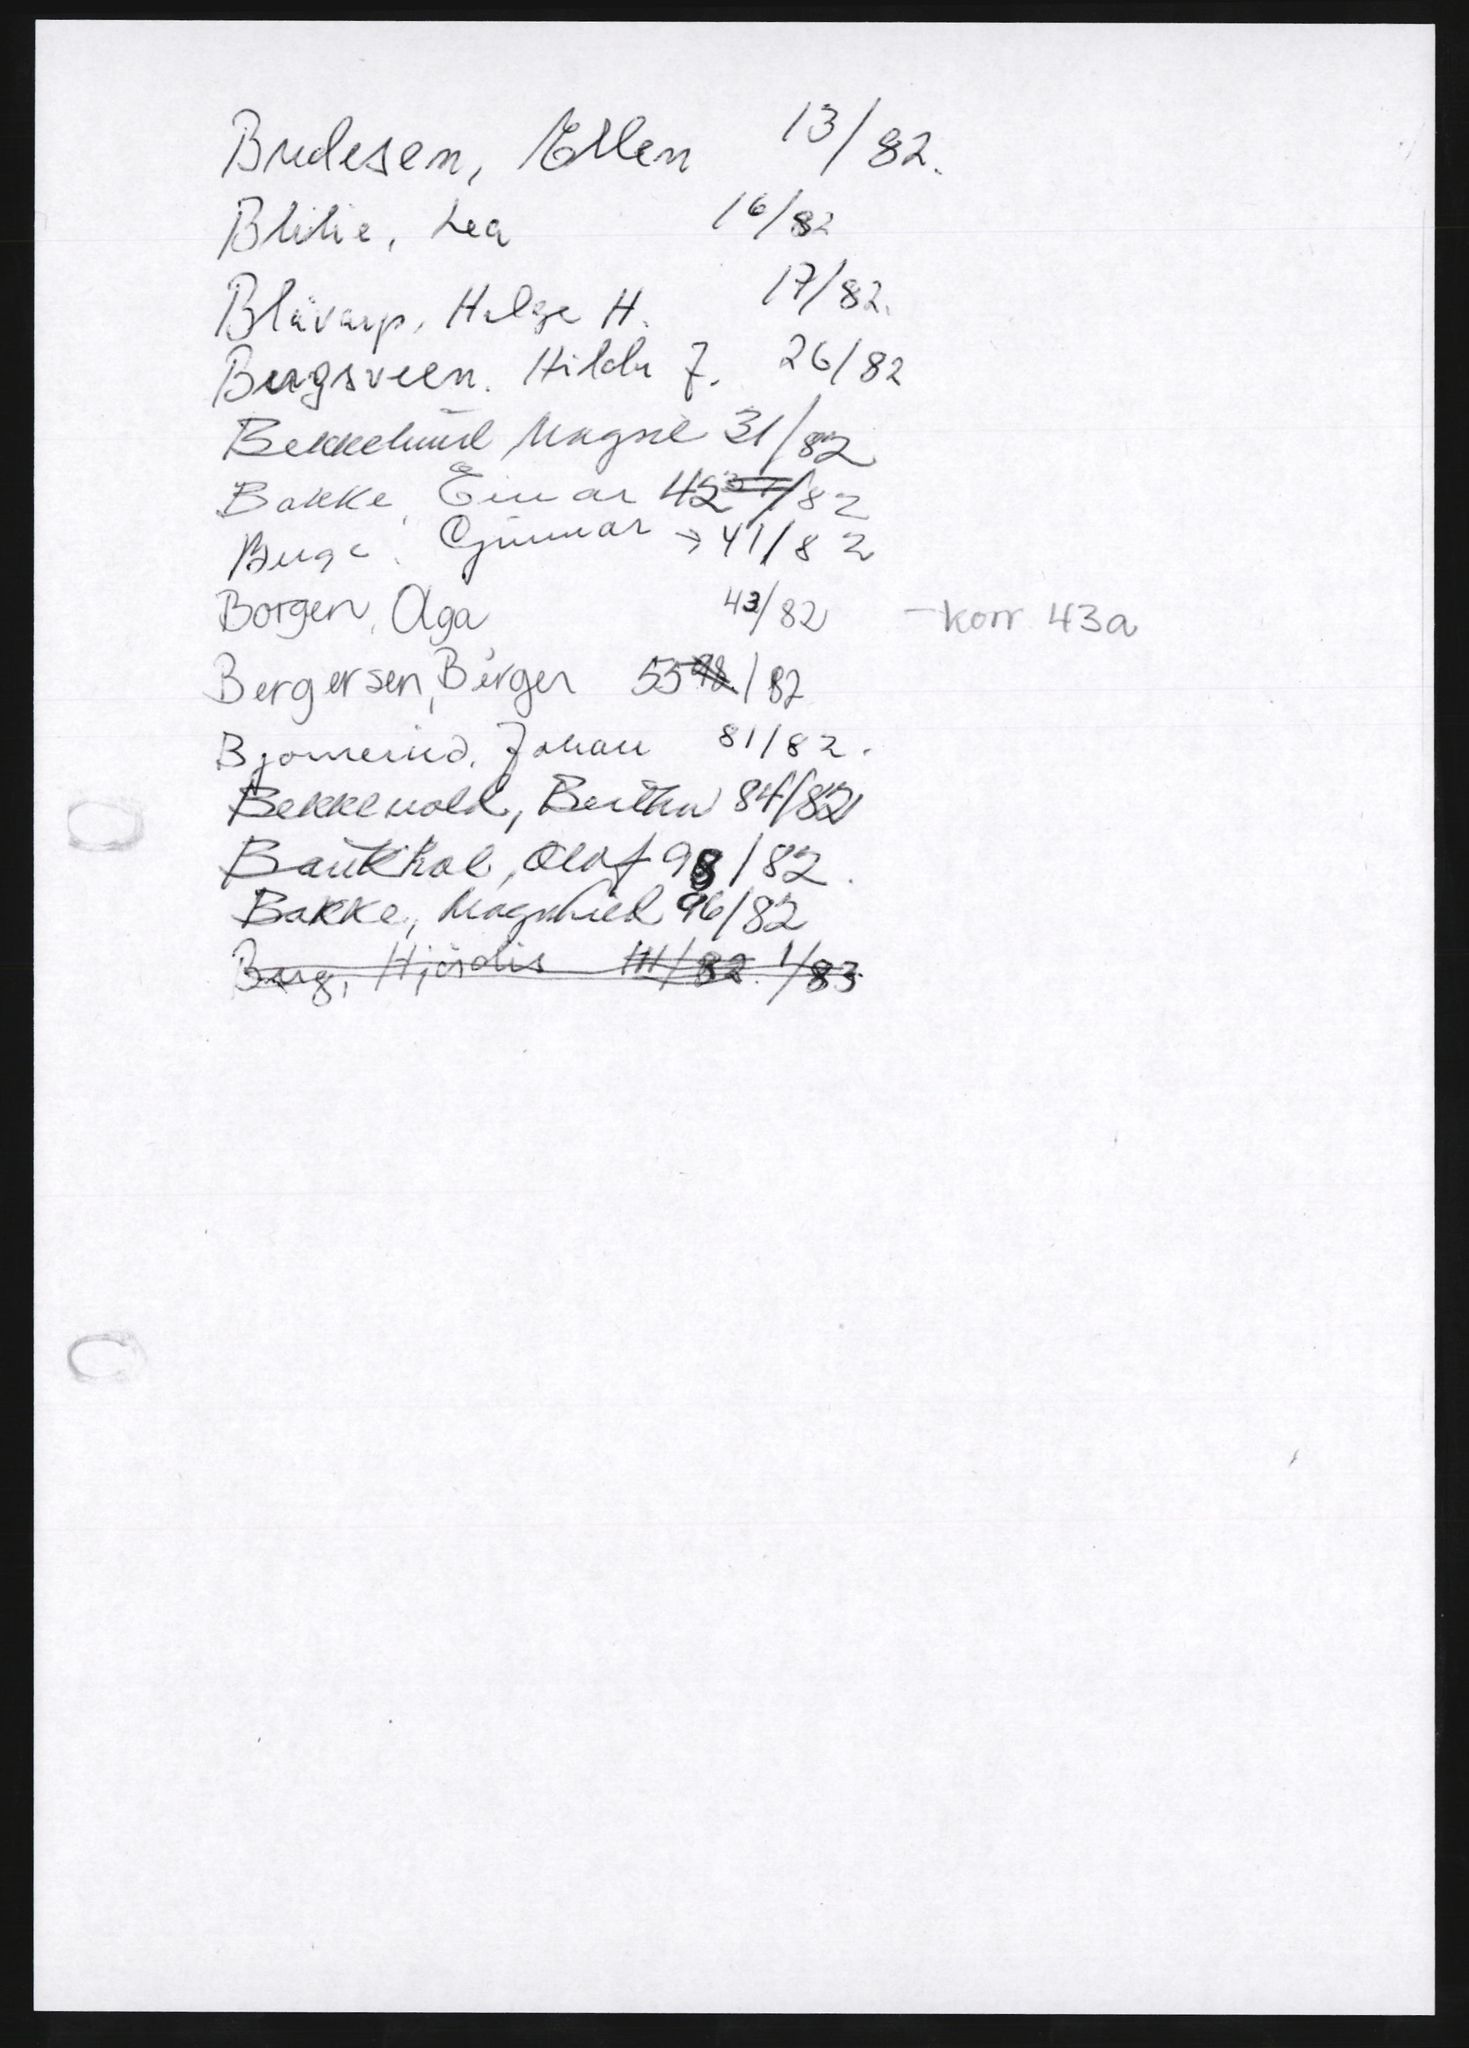 Bredesen, Ellen 13/82.
Blilie, Lea 16/82
Blåvarp, Helge H. 17/82.
Bergsveen. Hilda J. 26/82
Bekkelund Magne 31/82
Bakke, Einar 42/82
Berge, Gunnar → 41/82
Borgen, Olga 43/82 - korr 43a
Bergersen, Birger 55 98/82
Bjørnerud, Johan 81/82.
Bekkevold, Bertha 84/82
Bautkhol, Olaf 98/82.
Bakke, Magnhild 96/82
Berg, Hjørdis 111/82. 1/83.